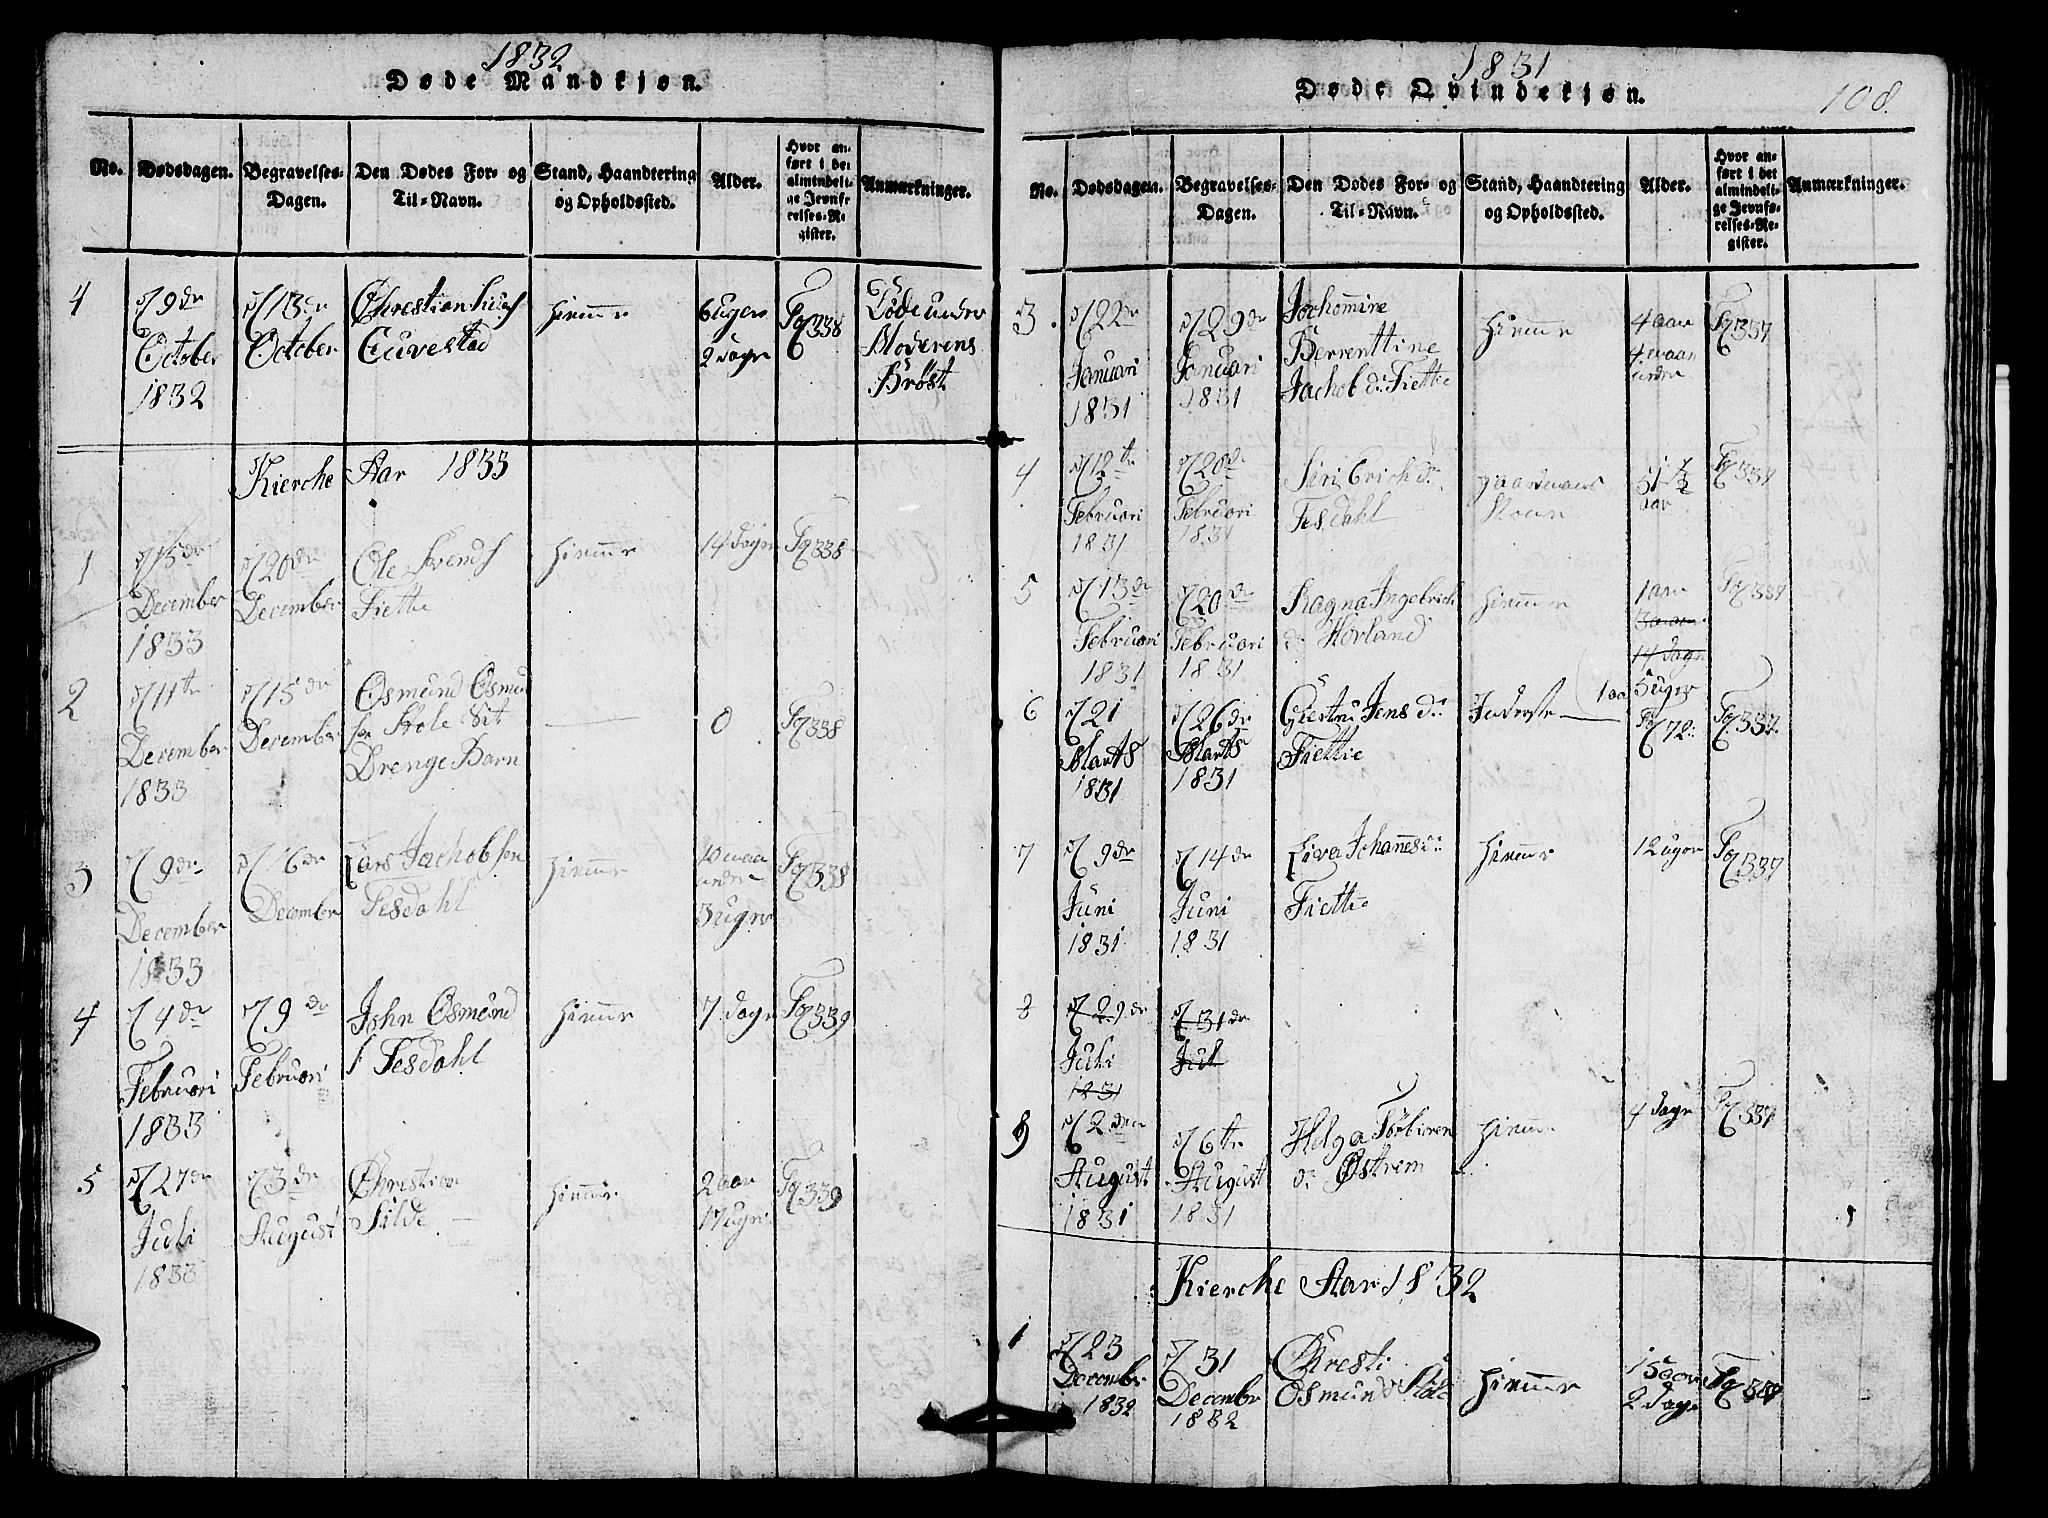 1832
Døde Mandkjøn.
No. Dødsdagen. Begravelses-Dagen. Den Dødes For- og Til-Navn. Stand, Haandtering og Opholdssted. Alder. Hvor anført i det almindelige Jevnførelses-Register. Anmærkninger.
4 d 9de October 1832 d 13de October Christian Cuvestad hiemme 6 uger 2 dage Fol 338 Døde under Moderens Brøst
Kierche Aar 1833
1 d 15de December 1833 d 20de December Ole Svends Siette hiemme 14 dage Fol 338
2 d 11te December 1833 d 15de December Osmund Osmundsen Stole Sit Drenge Barn 0 Fol 338
3 d 9de December 1833 d 16de December Lars Jachobsen Tesdahl hiemme 10 maaneder 3 uger Fol 338
4 d 4de Februari 1833 d 9de Februari John Osmund s Tesdahl hiemme 7 dage Fol 339
5 d 27de Juli 1833 d 3de August Christian Silde hiemme 2 aar 17 uger Fol 339
1831
Døde Qvindekjøn.
108.
No. Dødsdagen. Begravelses-Dagen. Den Dødes For- og Til-Navn. Stand, Haandtering og Opholdssted. Alder. Hvor anført i det almindelige Jevnførelses-Register. Anmærkninger.
3. d 22de Januari 1831 d 29de Januari 1831 Jochomine Berrenttine Jachob d: Siette hiemme 4 aar 4 Fol 337
4 d 12te Februari 1831 d 20de Februari 1831 Siri Erich d: Tesdahl gaardmans Kone 51 1/2 aar Fol 337
5 d 13de Februari 1831 d 20de Februari 1831 Ragna Ingebrich d: Hovland hiemme 1 aar 14 dage 3 uger Fol 337
6 d 21 Marts 1831 d 26de Marts 1831 Giertru Jens d: Fiettie Inderste 72 Fol 337.
7 d 9de Juni 1831 d 14de Juni 1831 Siva Johannes d: Fiette hiemme 12 uger Fol 337
8 d 29de Juli 1831 d 31de Jul
9 d 2den August 1831 d 6te August 1831 Helga Torbioren d: Østrem hiemme 4 dage Fol 337
Kierche Aar 1832
1 d 23 December 1832 d 31 December 1832 Chresti Osmund d: Stole hiemme 15 aar 2 dage Fol 337